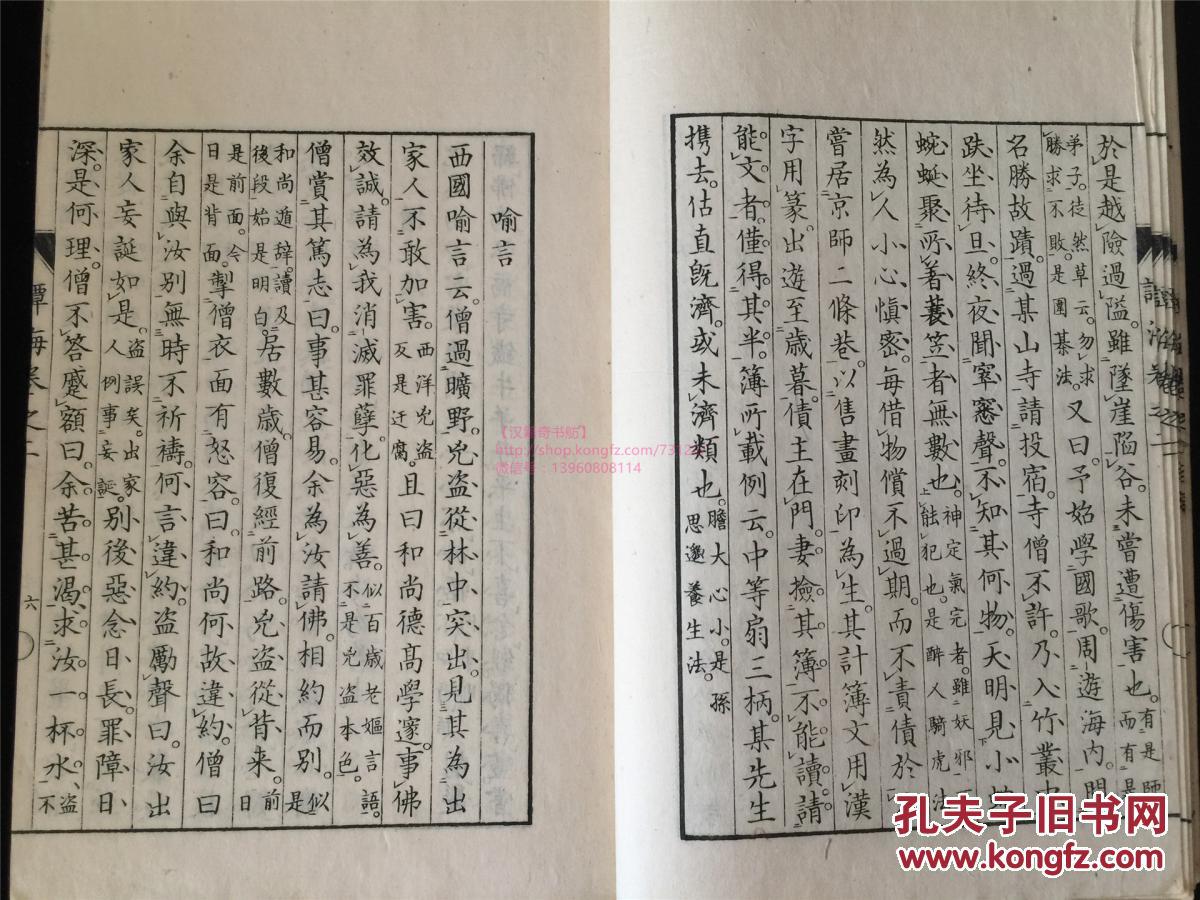 於是越險過隘。雖墜崖陷谷。未嘗遭傷害也。有是師而有是
弟子。徒然草云。勿求勝求不敗。是圍棊法。又曰。予始學國歌。周遊海内。
名勝故蹟。過某山寺。請投宿。寺僧不許。乃入竹叢
趺坐待旦。終夜聞窣窸聲。不知其何物。天明見小
蜿蜒聚。所著蓑笠者無數也。神定氣完者。雖妖邪不能犯也。是醉人騎虎法
然為人小心愼密。每借物償不過期。而不責債於
嘗居京師二條巷。以售畫刻印為生。其計簿文用漢
字用篆。出遊至歲暮。債主在門。妻撿其簿。不能讀。請
能文者。僅得其半。簿所載例云。中等扇三柄。某先生
携去。估直既濟。或未濟類也。膽大心小。是孫思邈養生法。
喻言
西國喻言云。僧過曠野。兇盜從林中突出。見其為出
家人。不敢加害。西洋兇盜。反是迂腐。且曰。和尚德高學邃。事佛
效誠。請為我消滅罪孽。化惡為善。似百歲老嫗言語。不是兇盜本色。
僧賞其篤志曰。事甚容易。余為汝請佛。相約而別。似是
和尚遁辞。讀及後段。始是明白。居數歲。僧復經前路。兇盜從背来。前日
是前面。今日是背面。掣僧衣。面有怒容。曰。和尚何故違約。僧曰
余自與汝別。無時不祈禱。何言違約。盜勵聲曰。汝出
家人妄誕如是。盜誤矣。出家人例事妄誕。別後惡念日長。罪障日
深。是何理。僧不答。蹙額曰。余苦甚渴。求汝一杯水。盜不
譚海卷之二
六
譚海卷之二
【汉籍奇书舫】
https://shop.kongfz.com/7312
微信号：13960808114
孔夫子旧书网
www.kongfz.com